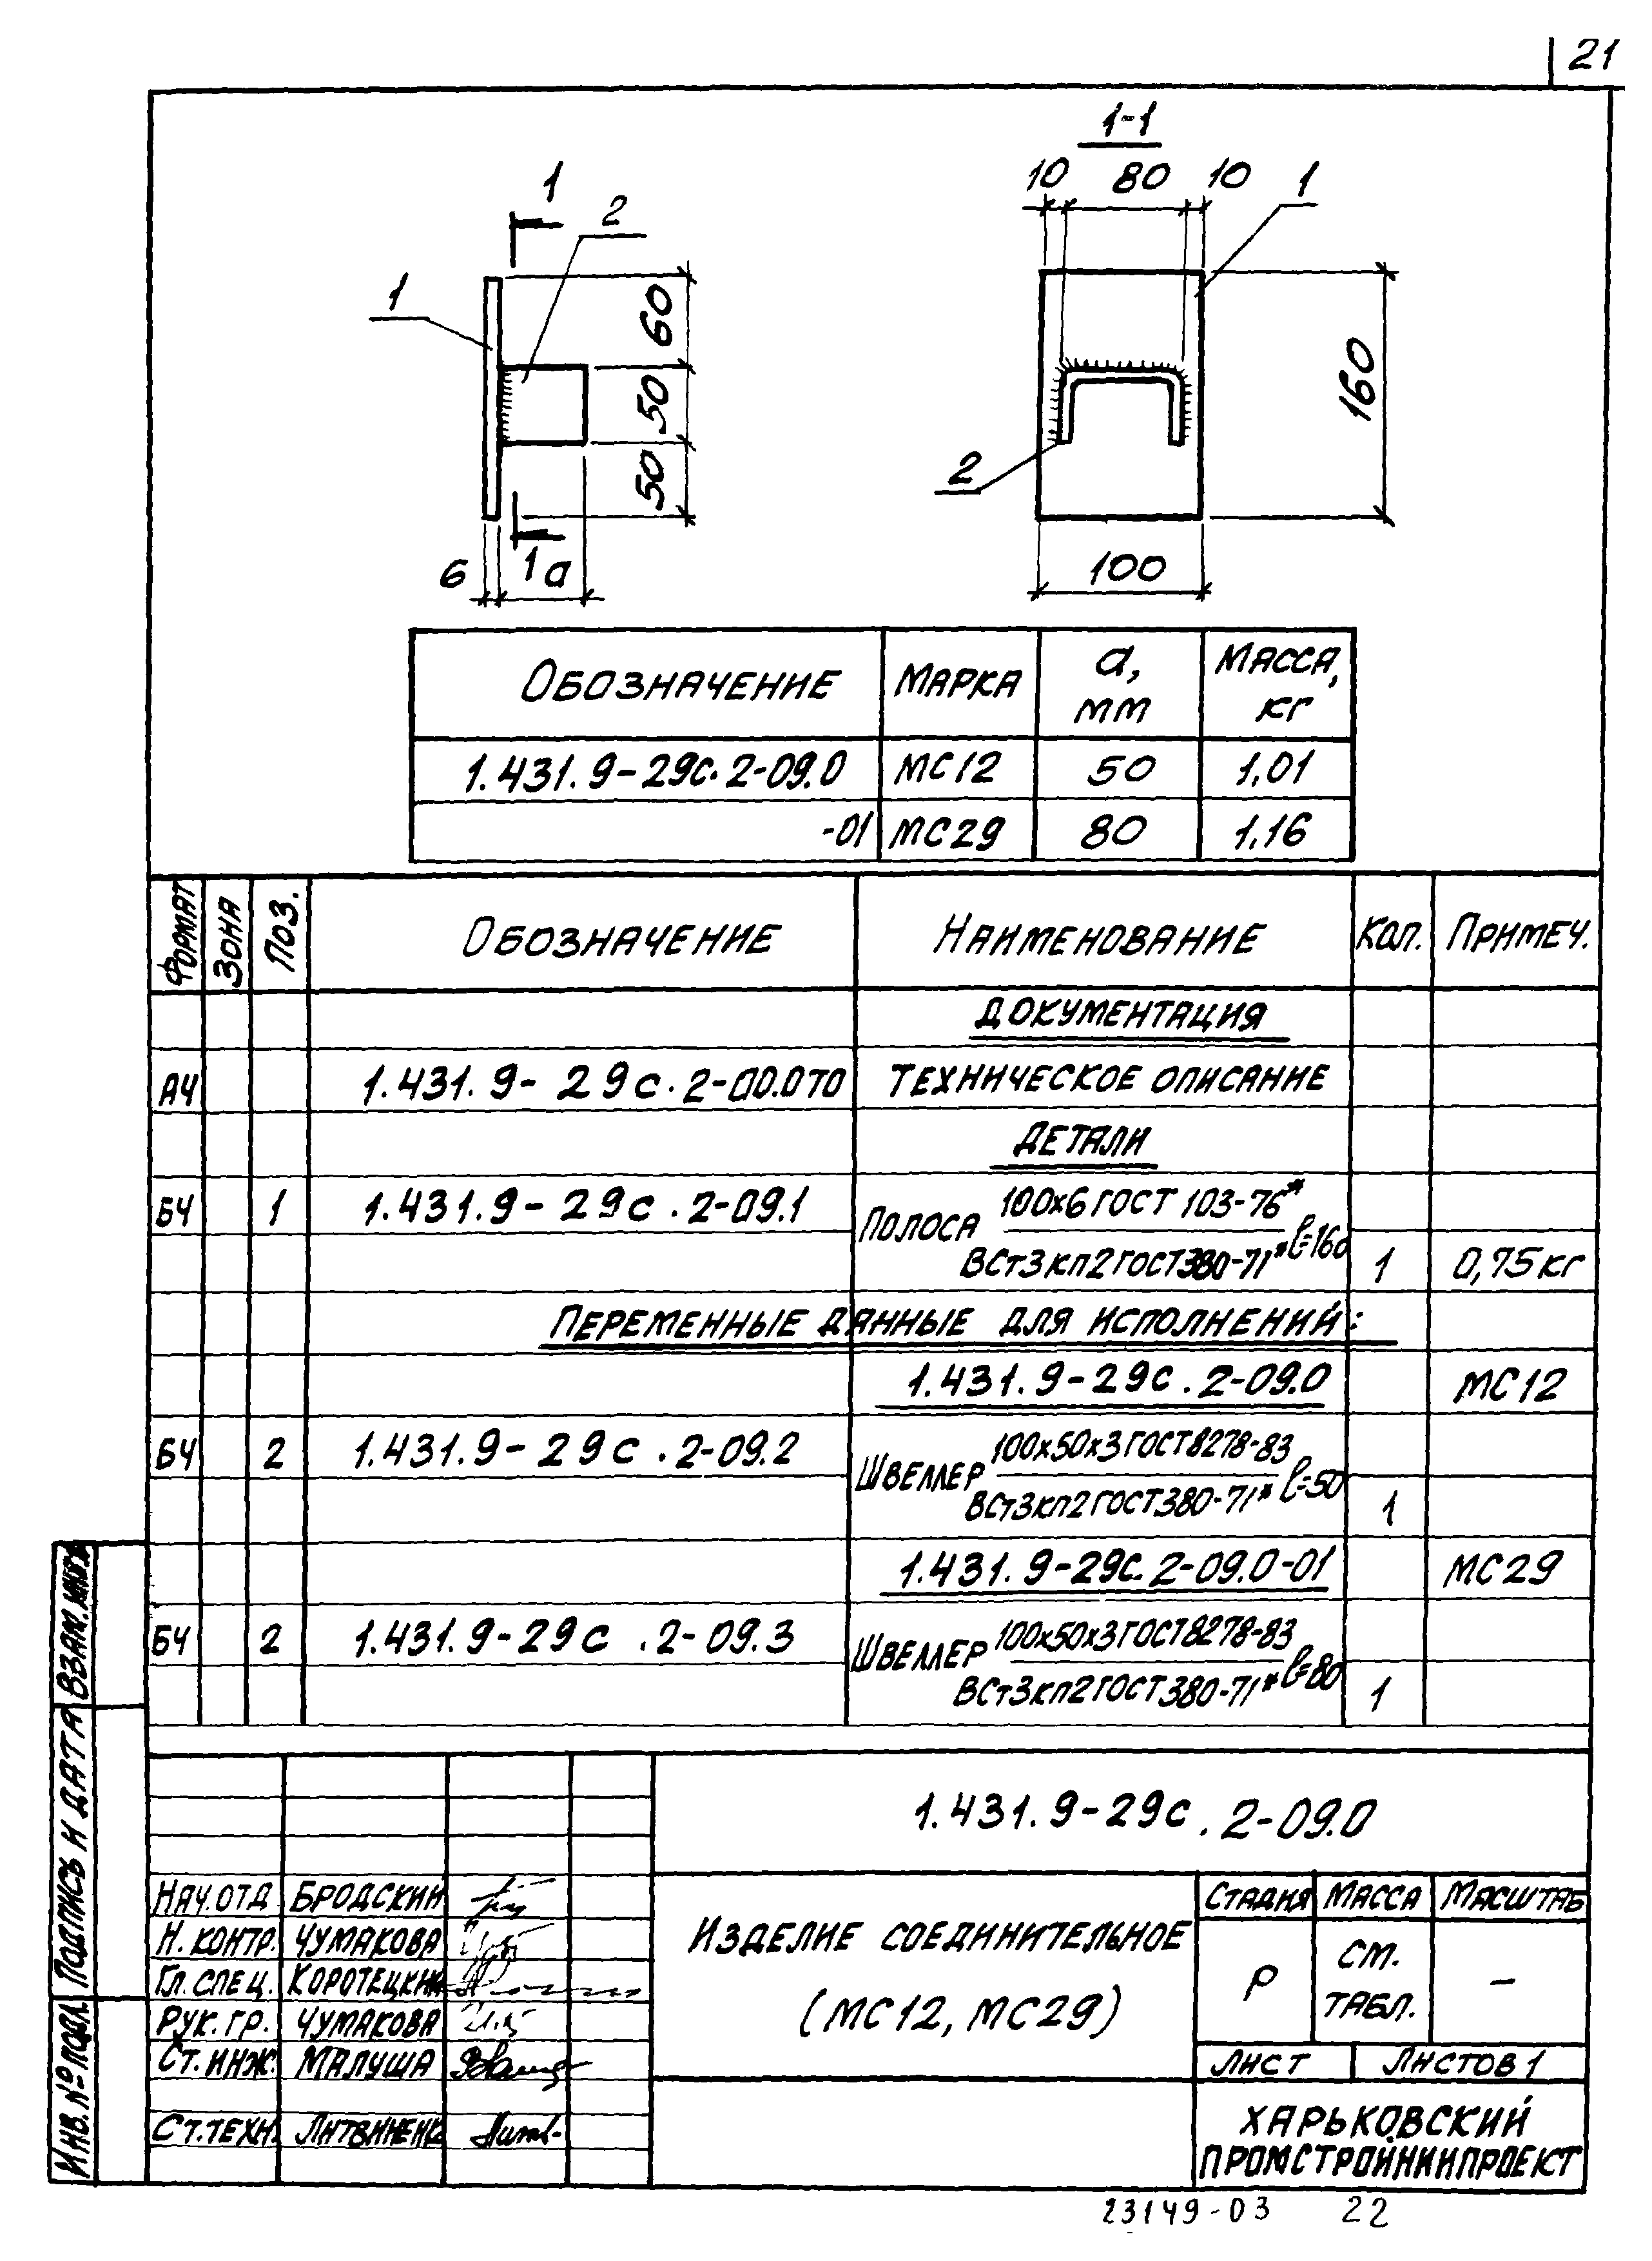 21
1-1
10 80 10 1
1
2
1
60
50
50
160
2
6 1 а
100
Обозначение Марка а, мм Масса, кг
1.431.9-29с.2-09.0 МС12 50 1,01
-01 МС29 80 1,16
Формат Зона Поз. Обозначение Наименование Кол. Примеч.
Документация
А4 1.431.9-29с.2-00.0ТО Техническое описание
Детали
БЧ 1 1.431.9-29с.2-09.1 Полоса 100х6 ГОСТ 103-76*
ВСт3кп2 ГОСТ 380-71* ℓ=160 1 0,75кг
Переменные данные для исполнений:
1.431.9-29с.2-09.0 МС12
БЧ 2 1.431.9-29с.2-09.2 Швеллер 100х50х3 ГОСТ 8278-83
ВСт3кп2 ГОСТ 380-71* ℓ=50 1
1.431.9-29с.2-09.0-01 МС29
БЧ 2 1.431.9-29с.2-09.3 Швеллер 100х50х3 ГОСТ 8278-83
ВСт3кп2 ГОСТ 380-71* ℓ=80 1
Взам.инв.№
Подпись и дата
Инв.№ подл.
1.431.9-29с.2-09.0
Нач.отд Бродский
Н.контр. Чумакова
Гл.спец. Коротецкий
Рук.гр. Чумакова
Ст.инж. Малуша
Ст.техн. Литвиненко
Изделие соединительное
(МС12, МС29)
Стадия Масса Масштаб
Р см. табл. –
Лист Листов 1
Харьковский
Промстройниипроект
23149-03 22